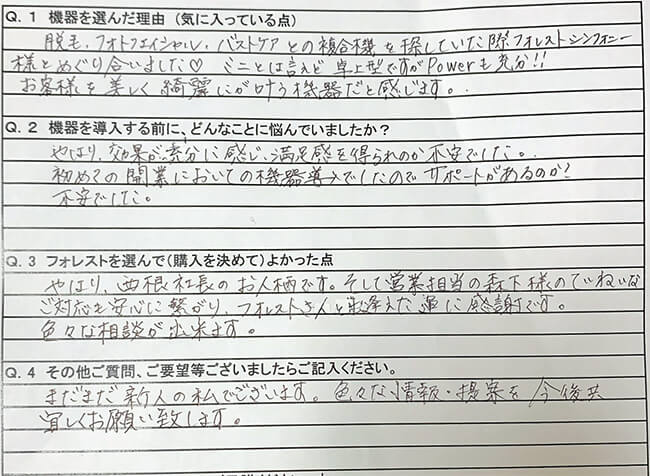 Q. 1 機器を選んだ理由（気に入っている点）
脱毛、フォトフェイシャル、バストケアとの複合機を探していた際フォレストシンフォニー
様とめぐり合いました♡ ミニとは言えど卓上型ですがPowerも充分!!
お客様を美しく綺麗にが叶う機器だと感じます。
Q. 2 機器を導入する前に、どんなことに悩んでいましたか？
やはり、効果が充分に感じ、満足感を得られのか不安でした。
初めての開業においての機器導入でしたのでサポートがあるのか？
不安でした。
Q. 3 フォレストを選んで（購入を決めて）よかった点
やはり、西根社長のお人柄です。そして営業担当の森下様のていねいな
ご対応も安心に繋がり、フォレストさんと出逢えた運に感謝です。
色々な相談が出来ます。
Q. 4 その他ご質問、ご要望等ございましたらご記入ください。
まだまだ新人の私でございます。色々な情報・提案を今後共
宜しくお願い致します。